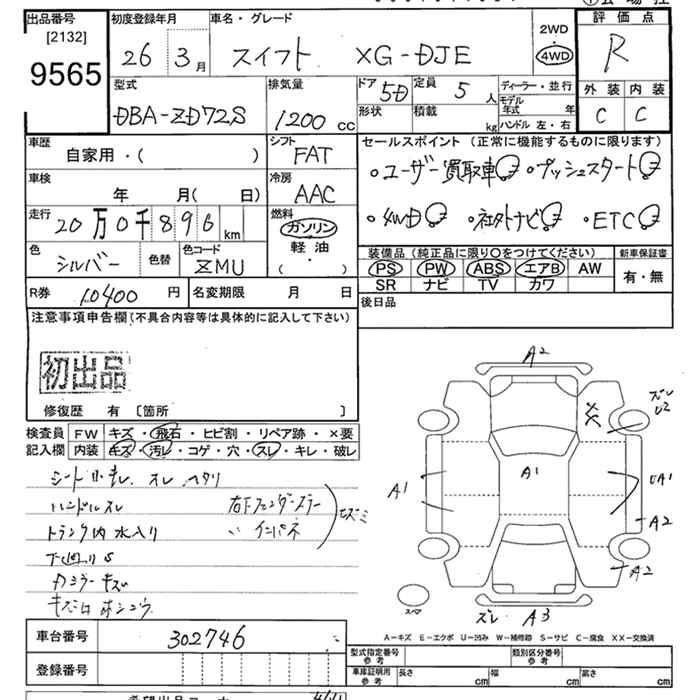 出品番号 初度登録年月 車名・グレード 2WD 評価点
[2132]
9565 26年 3月 スイフト XG-DJE 4WD R
型式 排気量 ドア 5D 定員 5人 ディーラー・並行 外装 内装
DBA-ZD72S 1200cc 形状 積載 kg モデル年式 年 C C
ハンドル 左・右
車歴 シフト セールスポイント(正常に機能するものに限ります)
自家用・( ) FAT ・ユーザー買取車 ・プッシュスタート
車検 冷房
年 月( 日) AAC ・4WD ・社外ナビ ・ETC
走行 燃料
20万0千896km ガソリン
軽油
( ・ )
装備品(純正品に限り〇をつけてください) 新車保証書
色 シルバー 色替 色コード ZMU
PS PW ABS エアB AW 有・無
SR ナビ TV カワ
R券 10400円 名変期限 月 日 後日品
注意事項申告欄(不具合内容等は具体的に記入して下さい)
初出品
修復歴 有 [箇所 ]
検査員 FW キズ・飛石・ヒビ割・リペア跡・×要
記入欄 内装 キズ・汚レ・コゲ・穴・スレ・キレ・破レ
シート コゲ、スレ ヘタリ
ハンドルスレ
右Fフェンダーステー
トランク内 水入り
〃 インパネ
下廻りS
キズ
A2
ズレ
U2
XX
A1
A1
UA1
A2
A2
スペア
ズレ A3
A-キズ E-エクボ U-凹み W-補修跡 S-サビ C-腐食 XX-交換済
車台番号 302746
登録番号
型式指定番号 参考 類別区分番号 参考
車庫証明用 参考 長さ cm 幅 cm 高さ cm